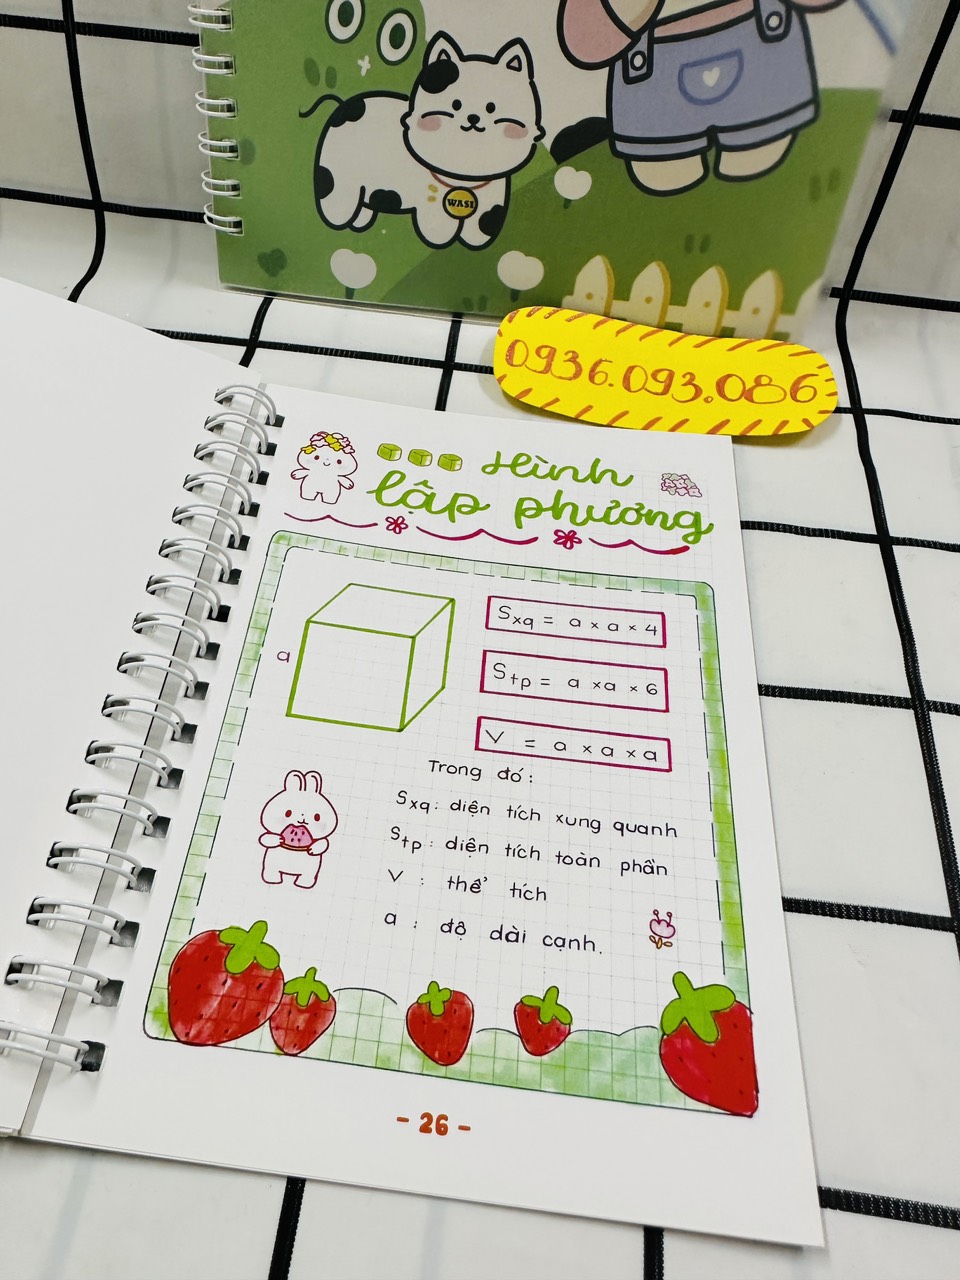 WASI
0936.093.086
Hình
lập phương
a
Sxq = a x a x 4
Stp = a x a x 6
V = a x a x a
Trong đó:
Sxq: diện tích xung quanh
Stp: diện tích toàn phần
V : thể tích
a : độ dài cạnh.
- 26 -